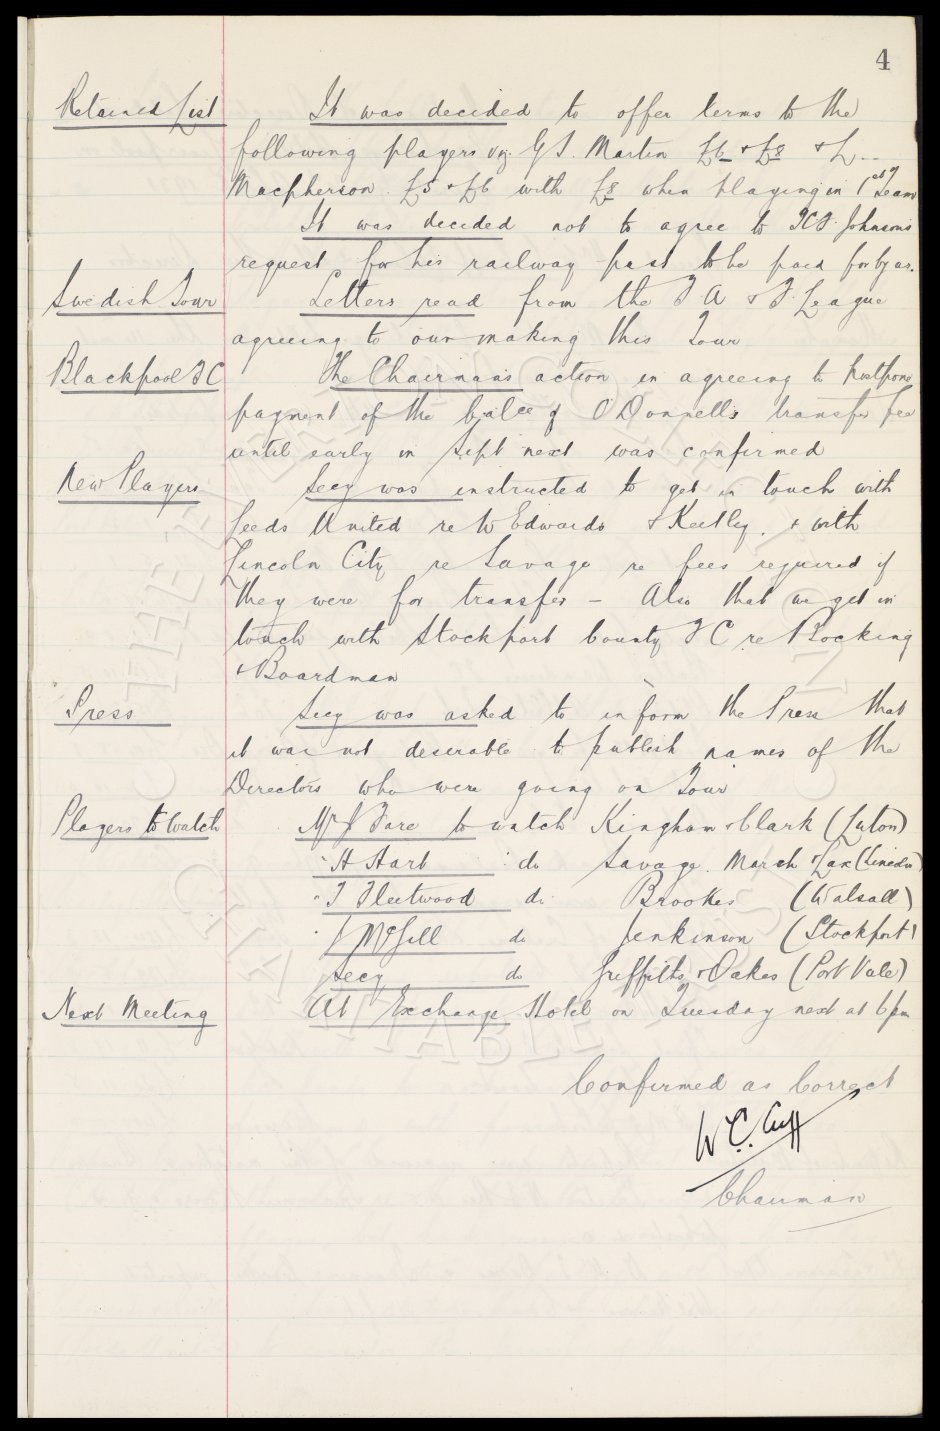 4
Retained List It was decided to offer terms to the
following players viz. G S. Martin £6 & £8 & L
Macpherson. £5 & £6 with £8 when playing in 1st Team
It was decided not to agree to Johnson's
request for his railway pass to be paid for by us.
Swedish Tour Letters read from the F A & F. League
agreeing to our making this Tour
Blackpool F C The Chairman's action in agreeing to postpone
payment of the balce of O'Donnell's transfer fee
until early in Sept next was confirmed
New Players Secy was instructed to get in touch with
Leeds United re W Edwards & Keetley, & with
Lincoln City re Savage re fees required if
they were for transfer — Also that we get in
touch with Stockport County F C re Bocking
& Boardman
Press Secy was asked to inform the Press that
it was not deserable to publish names of the
Directors who were going on Tour
Players to Watch Mr J Fare to watch Kingham & Clark (Luton)
" A Hart do Savage. March & Lax (Lincoln)
" T Fleetwood do Brookes (Walsall)
" J McGill do Jenkinson (Stockport)
Secy do Griffiths & Oakes (Port Vale)
Next Meeting At Exchange Hotel on Tuesday next at 6 pm
Confirmed as Correct
W. C. Cuff
Chairman
© THE EVERTON COLLECTION CHARITABLE TRUST